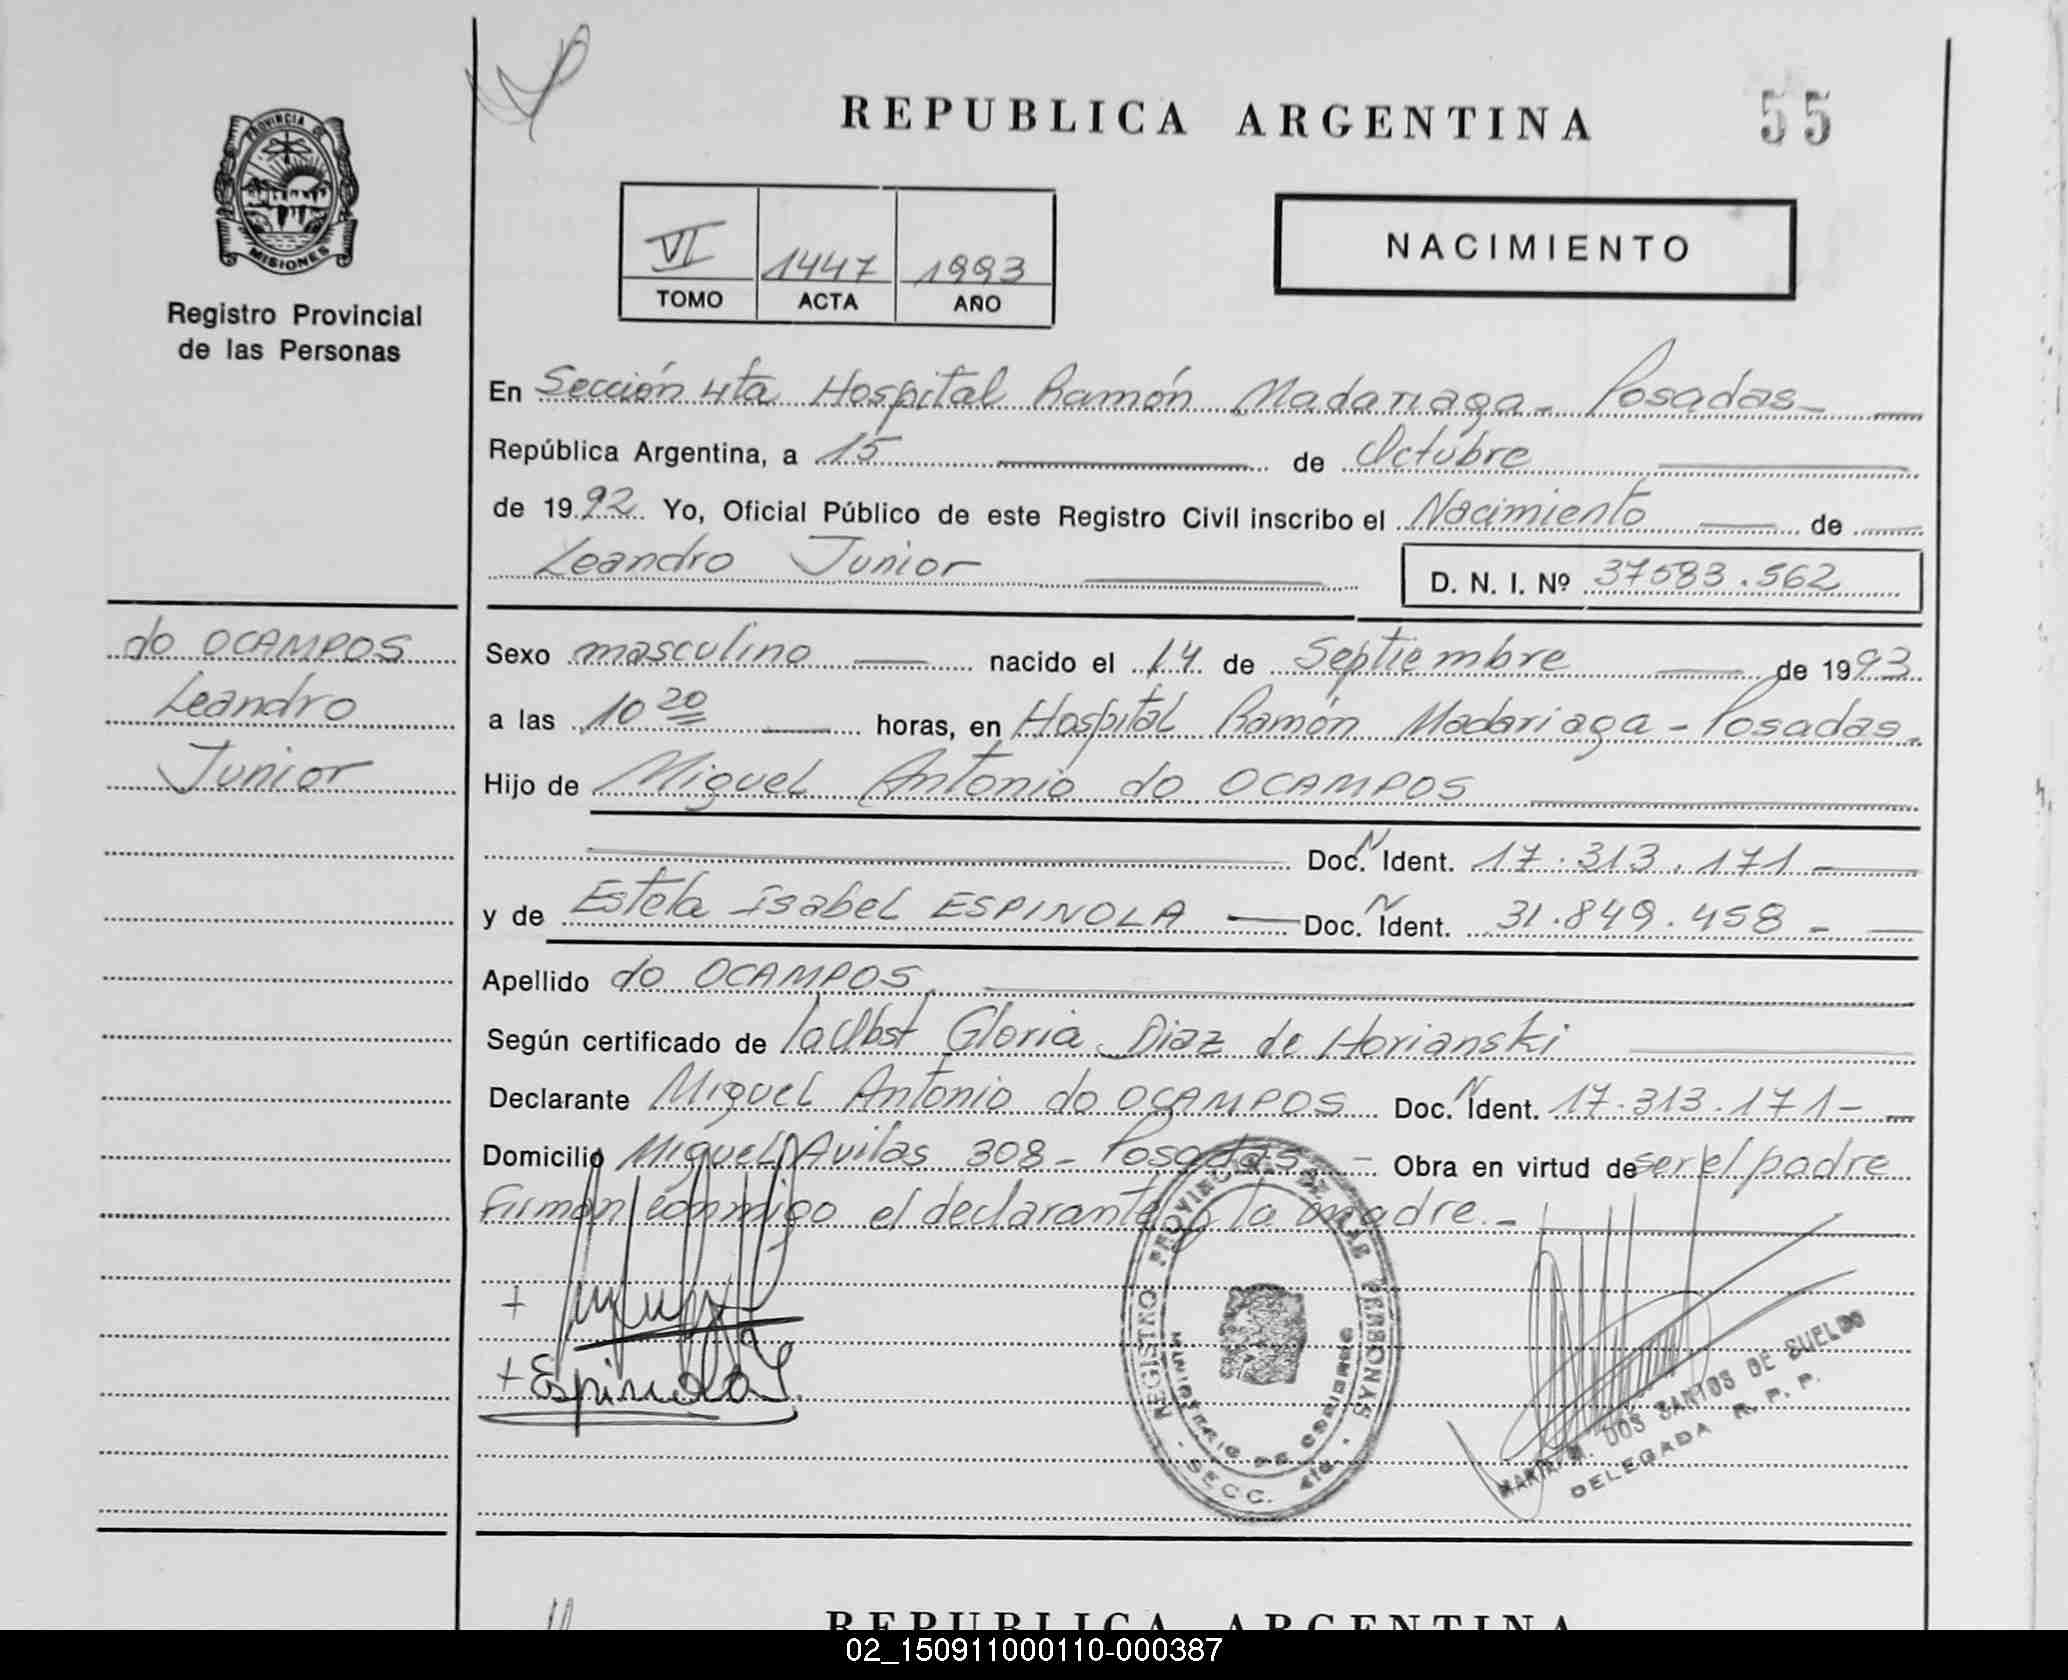 REPUBLICA ARGENTINA
55
PROVINCIA DE
MISIONES
Registro Provincial
de las Personas
VI 1447 1993
TOMO ACTA AÑO
NACIMIENTO
En Sección 4ta Hospital Ramón Madariaga - Posadas -
República Argentina, a 15 de Octubre
de 1992 Yo, Oficial Público de este Registro Civil inscribo el Nacimiento de
Leandro Junior D. N. I. Nº 37583.562
do OCAMPOS
Leandro
Junior
Sexo masculino nacido el 14 de Septiembre de 1993
a las 10 20 horas, en Hospital Ramón Madariaga - Posadas.
Hijo de Miguel Antonio do OCAMPOS
Doc. N Ident. 17.313.171 -
y de Estela Isabel ESPINOLA Doc. N Ident. 31.849.458 -
Apellido do OCAMPOS
Según certificado de Gloria Diaz de Horianski
Declarante Miguel Antonio do OCAMPOS Doc. N Ident. 17.313.171 -
Domicilio Miguel Avilas 308 - Posadas - Obra en virtud de ser el padre
Firman conmigo el declarante y la madre. -
+
+ Espinola I.
REGISTRO PROVINCIAL DE LAS PERSONAS
MINISTERIO DE GOBIERNO
SECC. 4ta.
MARIA M. DOS SANTOS DE SUELDO
DELEGADA R. P. P.
REPUBLICA ARGENTINA
02_150911000110-000387